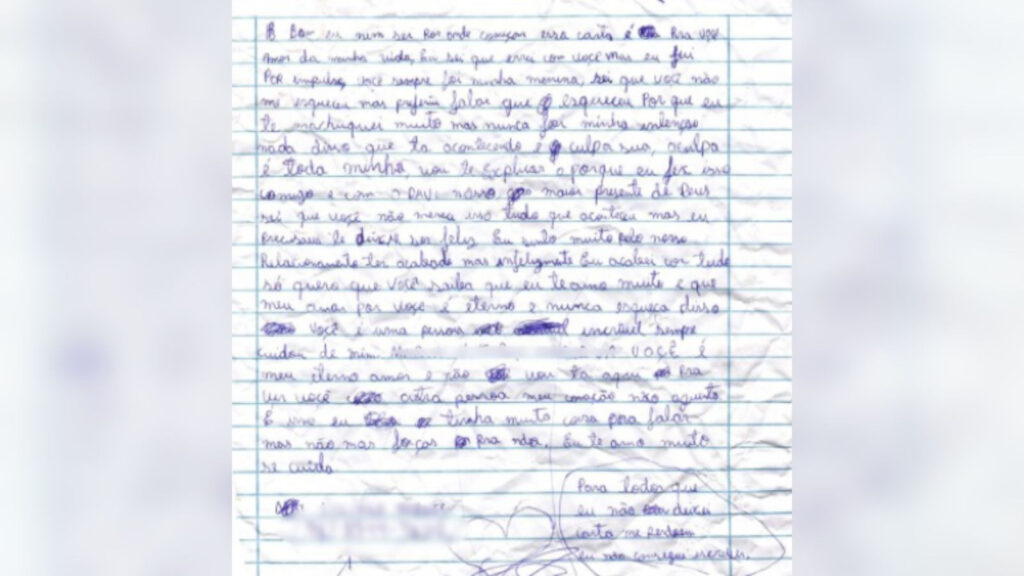 Bom eu nem sei por onde começar essa carta é pra você
amor da minha vida, Eu sei que errei com você mas eu fui
por impulso, você sempre foi minha menina, sei que você não
me esqueceu mas preferiu falar que esqueceu Por que eu
te machuquei muito mas nunca foi minha intenção
nada disso que ta acontecendo é culpa sua, a culpa
é toda minha, vou te explicar o porque eu fez isso
comigo e com o DAVI nosso maior presente de Deus
sei que você não merecia isso tudo que aconteceu mas eu
precisava te deixar ser feliz. Eu sinto muito pelo nosso
Relacionamento ter acabado mas infelizmente Eu acabei com tudo
só quero que você saiba que eu te amo muito e que
meu amor por você é eterno e nunca esqueça disso
Você é uma pessoa incrível sempre
cuidou de mim VOCÊ é
meu eterno amor e não vou ta aqui pra
ver você outra pessoa meu coração não aguenta
É isso eu tinha muito coisa pra falar
mas não nas forças pra nada. Eu te amo muito
se cuida
Para todos que
eu não deixei
carta me perdoem
eu não consegui escrever.